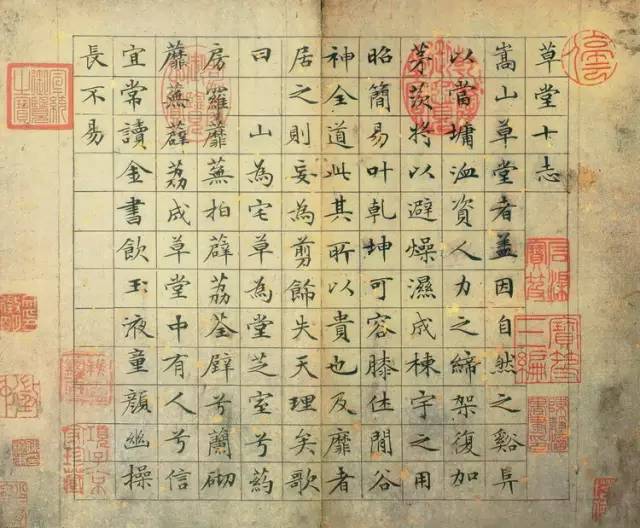 草堂十志
嵩山草堂者盖因自然之谿阜
以當墉洫資人力之締架復加
茅茨將以避燥濕成棟宇之用
昭簡易叶乾坤可容膝休閒谷
神全道此其所以貴也及靡者
居之則妄為剪餝失天理矣歌
曰 山為宅草為堂芝室兮葯
房羅蘼蕪拍薜荔荃壁兮蘭砌
蘼蕪薜荔成草堂中有人兮信
宜常讀金書飲玉液童顏幽操
長不易